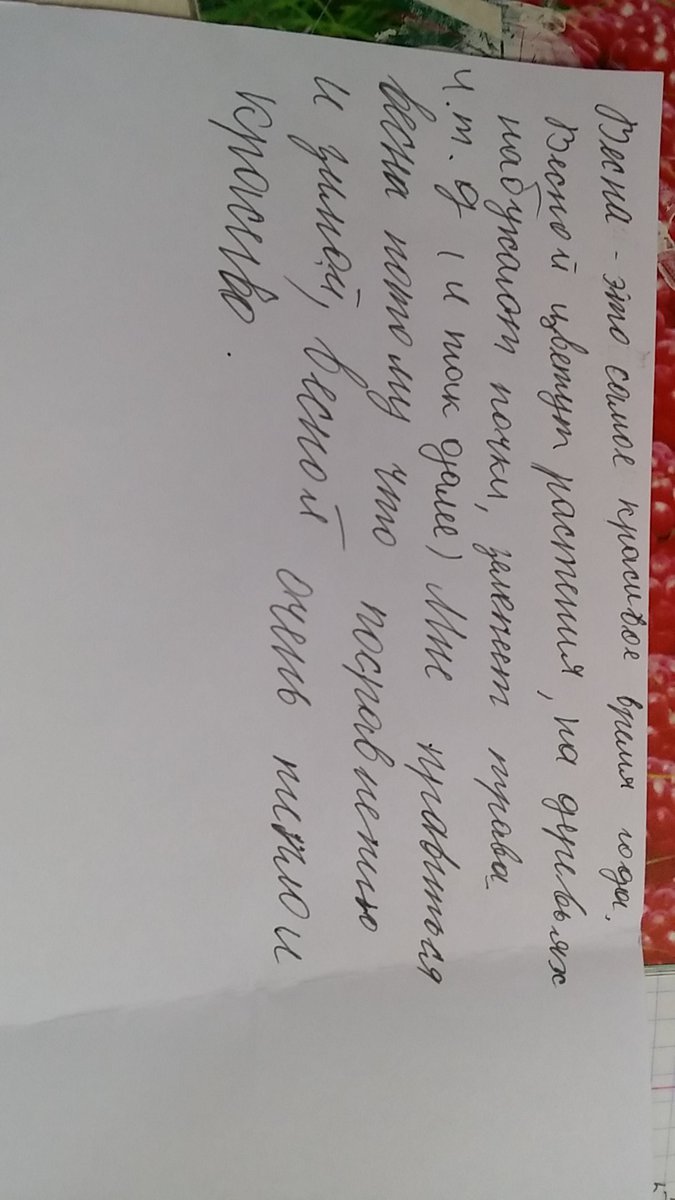 Весна - это самое красивое время года.
Весной цветут растения, на деревьях
набухают почки, зеленеет трава
и.т.д (и так далее) Мне нравиться
весна потому что посравнению
и зимой, весной очень тепло и
красиво.